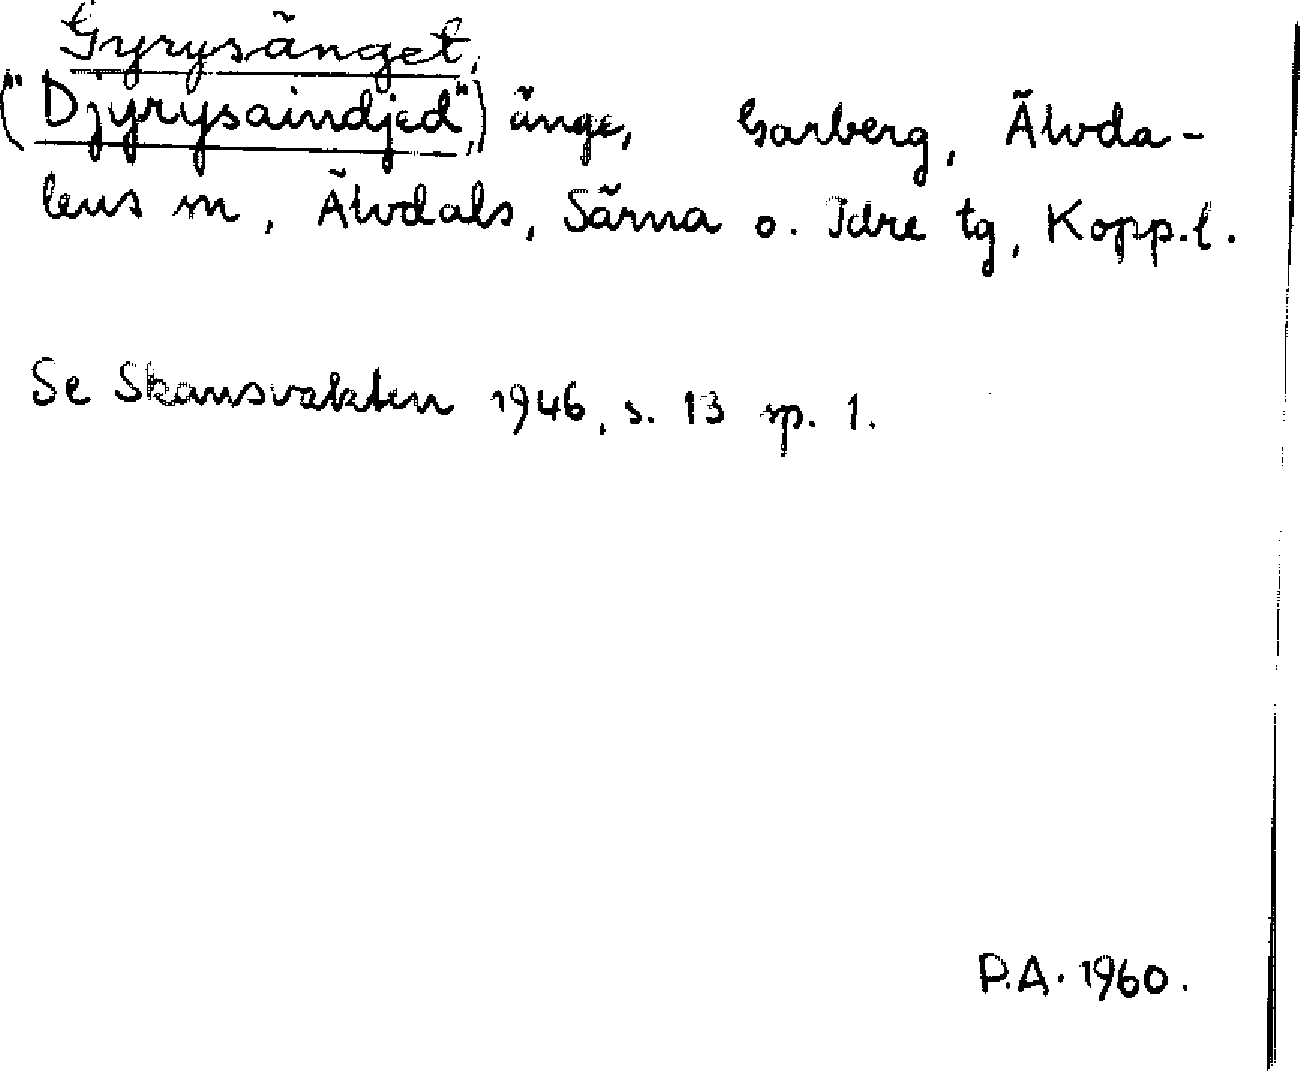 Gyrysänget,
("Djyrysaindjed",) änge, Garberg, Älvda-
lens sn, Älvdals, Särna o. Idre tg, Kopp.l.
Se Skansvakten 1946, s. 13 sp. 1.
P.A. 1960.